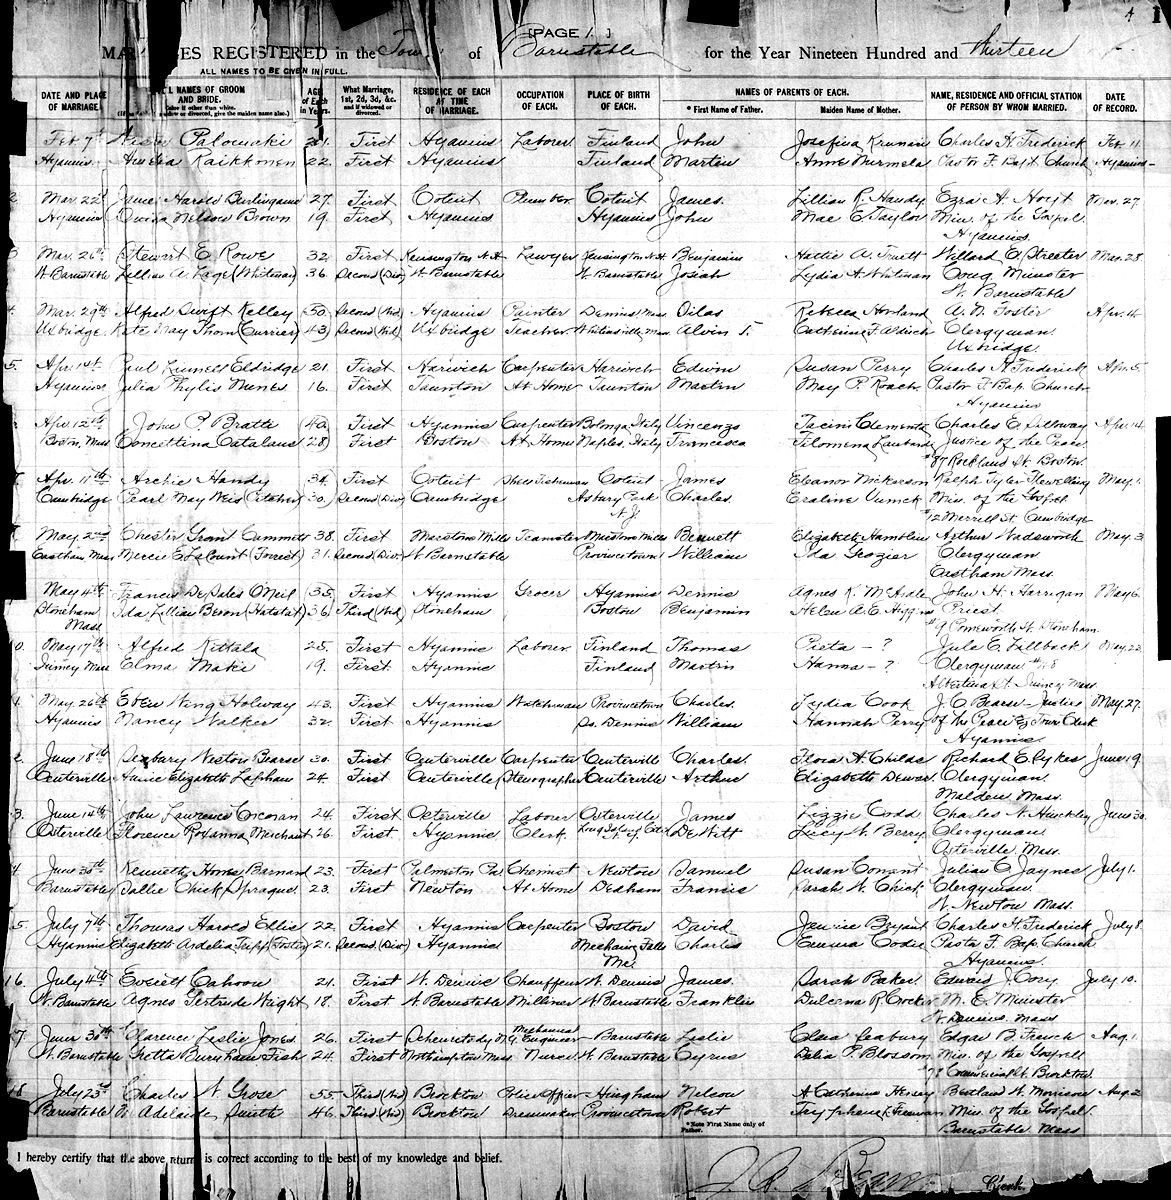 [PAGE 1.]
MARRIAGES REGISTERED in the Town of Barnstable for the Year Nineteen Hundred and Thirteen
ALL NAMES TO BE GIVEN IN FULL.
DATE AND PLACE OF MARRIAGE. NAMES OF GROOM AND BRIDE. AGE of Each in Years. What Marriage, 1st, 2d, 3d, &c. and if widowed or divorced. RESIDENCE OF EACH AT TIME OF MARRIAGE. OCCUPATION OF EACH. PLACE OF BIRTH OF EACH. NAMES OF PARENTS OF EACH. * First Name of Father. Maiden Name of Mother. NAME, RESIDENCE AND OFFICIAL STATION OF PERSON BY WHOM MARRIED. DATE OF RECORD.
Feb 7th Palomaki First Hyannis Laborer Finland John Josefina Charles H. Frederick Feb 11
Hyannis Raikkonen 22. First Hyannis Finland Martin Pastor F. Bapt. Church Hyannis
2 Mar. 22nd James Harold Burlingame 27. First Cotuit Plumber Cotuit James Lillian R. Handy Ezra A. Hoyt Mar. 27
Hyannis Nelson Brown 19. First Hyannis Hyannis John Mae E. Taylor Min. of the Gospel
Hyannis
3 Mar. 26th Stewart E. Rowe 32 First Kensington N.H. Lawyer Kensington N.H. Benjamin Hattie A. Truett Willard E. Streeter Mar. 28
W. Barnstable Lillian A. Page (Whitman) 36. Second (Div) W. Barnstable W. Barnstable Josiah Lydia A. Whitman Cong. Minister
W. Barnstable
4 Mar. 29th Alfred Swift Kelley 50 Second (Wid) Hyannis Painter Dennis Mass Silas Rebecca Howland A. N. Foster Apr. 4
Uxbridge Kate May Thom (Currier) 43 Second (Wid) Uxbridge Teacher Whitinsville, Mass Alvin T. Catherine F. Aldrich Clergyman
Uxbridge
5. Apr. 1st Paul Linnell Eldridge 21. First Harwich Carpenter Harwich Edwin Susan Perry Charles H. Frederick Apr. 5
Hyannis Julia Phylis Nunes 16. First Taunton At Home Taunton Martin May P. Roach Pastor F. Bap. Church
Hyannis
Apr 12th John P. Bratti 40. First Hyannis Carpenter Bologna, Italy Vincenzo Clementa Charles E. Apr. 14
Boston, Mass Concettina Catalano 28 First Boston At Home Naples, Italy Francesca Filomena Lombardi Justice of the Peace
#87 Rockland St. Boston
7. Apr. 11th Archie Handy 34. First Cotuit Shell Fisherman Cotuit James Eleanor Nickerson Ralph Tyler Flewelling May 1
Cambridge Pearl May Weis 30. Second (Div) Cambridge Asbury Park Charles Min. of the Gospel
N.J. #12 Merrill St. Cambridge
May 2nd Chester Grant Cammett 38. First Marstons Mills Teamster Marstons Mills Bennett Elizabeth Hamblin Arthur Wadsworth May 3
Eastham, Mass Mercie E. LaCount (Forrest) 31. Second (Div) W. Barnstable Provincetown William Ida Grozier Clergyman
Eastham Mass.
May 4th Francis DeSales O'Neil 35 First Hyannis Grocer Hyannis Dennis Agnes K. McArdle John H. Harrigan May 6
Stoneham Ida Lillian Beron 36 Third (Wid) Stoneham Boston Benjamin Helen A. E. Higgins Priest
Mass #9 Pomeworth St. Stoneham
10. May 17th Alfred Kittala 25. First Hyannis Laborer Finland Thomas Pieta - ? May 22
Quincy Mass Elma Maki 19. First Hyannis Finland Martin Hanna - ? Clergyman #48
Albertina St. Quincy Mass
May 26th Eben Wing Holway 43. First Hyannis Watchman Provincetown Charles Lydia Cook J. C. Bearse - Justice May 27
Hyannis Nancy Walker 32. First Hyannis So. Dennis William Hannah Perry of the Peace & Town Clerk
Hyannis
June 18th Nestor Bearse 30. First Centerville Carpenter Centerville Charles Flora A. Childs Richard E. Sykes June 19
Centerville Elizabeth Lapham 24. First Centerville Stenographer Centerville Arthur Elizabeth Clergyman
Malden Mass.
3. June 14th John Lawrence Corcoran 24. First Osterville Laborer Osterville James Lizzie Codd Charles N. Hinckley June 30
Osterville Florence Roxanna Merchant 26. First Hyannis Clerk DeWitt Lucy N. Berry Clergyman
Osterville Mass.
4 June 30th Kenneth Barnard 23. First Palmerton Pa. Chemist Newton Samuel Susan Conant Julian C. Jaynes July 1
Barnstable Sallie Chick Sprague 23. First Newton At Home Dedham Francis Sarah W. Chick Clergyman
W. Newton Mass.
5. July 7th Thomas Harold Ellis 22 First Hyannis Carpenter Boston David Jennie Bryant Charles H. Frederick July 8
Hyannis Elizabeth Ardelia 21. Second (Div) Hyannis Mechanic Falls Charles Emma Pastor F. Bap. Church
Me. Hyannis
16. July 4th Everett Cahoon 21. First W. Dennis Chauffeur W. Dennis James Sarah Baker Edward J. July 10
W. Barnstable Agnes Gertrude 18. First W. Barnstable Milliner W. Barnstable Franklin Dulcena R. Crocker M. E. Minister
W. Dennis, Mass
17 June 30th Clarence Leslie Jones 26. First Schenectady N.Y. Mechanical Engineer Barnstable Leslie Clara Seabury Edgar B. French Aug. 1
W. Barnstable Gretta Burnham Fish 24. First Northampton Mass. Nurse W. Barnstable Cyrus Delia P. Blossom Min. of the Gospel
Commercial St. Brockton
18 July 23rd Charles N. Grose 55 Third (Wid) Brockton Police Officer Hingham Nelson A. Catherine Hersey Bertland W. Morrison Aug 2
Barnstable Adelaide Smith 46. Third (Wid) Brockton Dressmaker Provincetown Robert Freeman Min. of the Gospel
Barnstable Mass
* Note First Name only of Father.
I hereby certify that the above return is correct according to the best of my knowledge and belief.
Clerk.